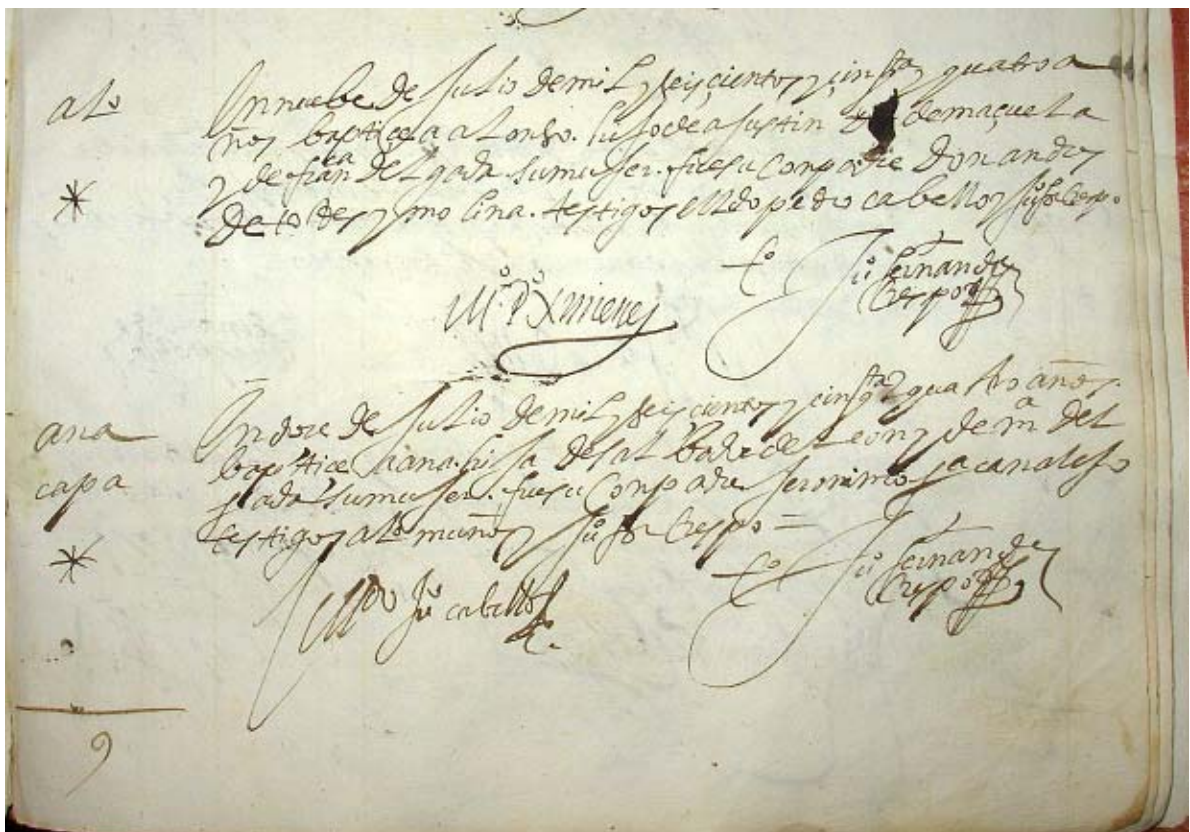 alº
En nuebe de Julio de mil y seiscientos y cinqta y quatro a
ños baptice a alonso. hijo de agustin de maçuela
y de franca delgada su muger. fue su Conpadre Don andres
de to de y molina. testigos el Ldo pedro cabello y Juº frz Crespo
Mº Pº Ximenez
Juº fernandez
Crespo
ana
capa
En doce de Julio de mil y seiscientos y cinqta y quatro años
baptice a ana. hija de salbador de Leon y de mª del
gada su muger. fue su Conpadre Jeronimo canalejo
testigos alº muñoz y Juº frz Crespo =
Ldo Juº cabello
Juº fernandez
Crespo
9